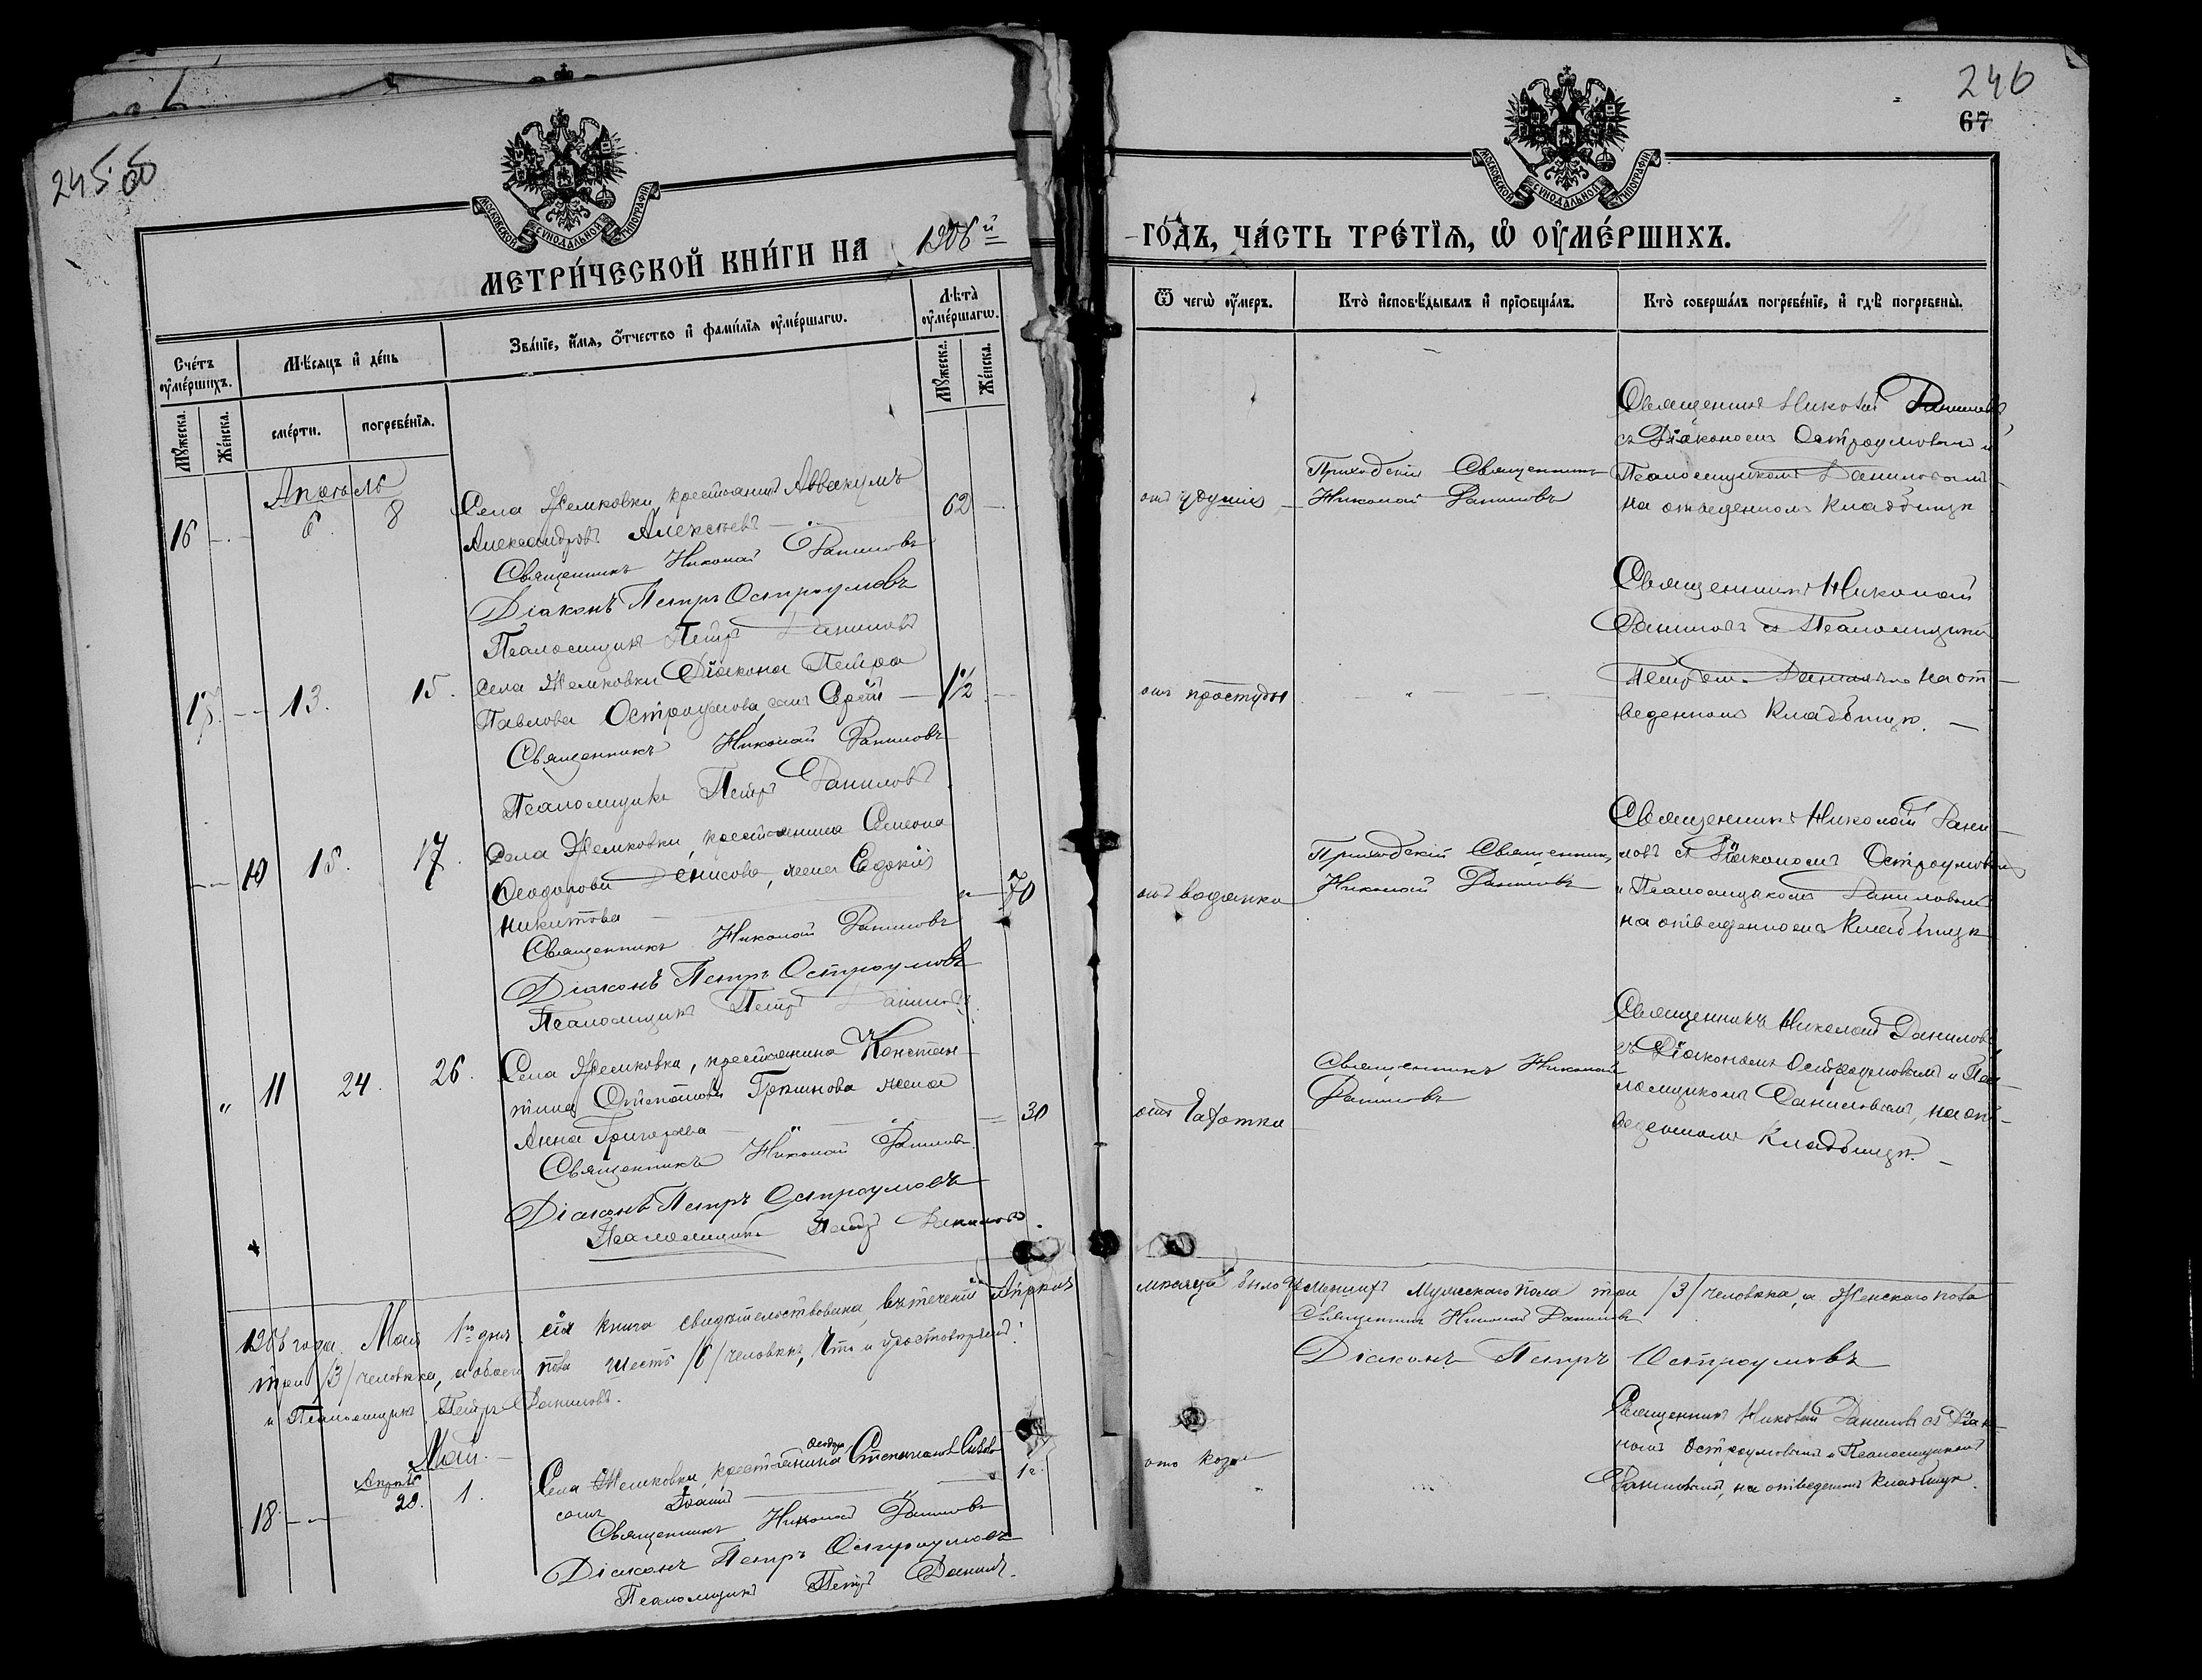 245 об
246
67
МОСКОВСКОЙ СѴНОДАЛЬНОЙ ТИПОГРАФІИ
МОСКОВСКОЙ СѴНОДАЛЬНОЙ ТИПОГРАФІИ
МЕТРИ́ЧЕСКОЙ КНИ́ГИ НА 1906й
ГО́ДЪ, ЧА́СТЬ ТРЕ́ТІЯ, Ѡ ОУМЕ́РШИХЪ.
Сче́тъ оуме́ршихъ.
Мѣ́сяцъ и де́нь
Зва́нїе, и́мя, о́тчество и фами́лїя оуме́ршагѡ.
Лѣта̀ оуме́ршагѡ.
Мꙋ́жеска.
Же́нска.
сме́рти.
погребе́нїя.
Мꙋ́жеска.
Же́нска.
Ѿ чегѡ̀ оу́меръ.
Кто̀ и҆сповѣ́дывалъ и҆ прїѡбща́лъ.
Кто̀ соверша́лъ погребе́нїе, и҆ гдѣ̀ погребены̀.
Апрѣль
16 6. 8
Села Жемковки, крестьянинъ Аввакумъ
Александровъ Алексѣевъ
62
Священникъ Николай Даниловъ
Діаконъ Петръ Остроумовъ
Псаломщикъ Петръ Даниловъ
Приходскій Священникъ
Николай Даниловъ
Священникъ Николай Даниловъ
съ Діакономъ Остроумовымъ и
Псаломщикомъ Даниловымъ
на отведенномъ кладбищѣ
17. 13. 15.
Села Жемковки Діакона Петра
Павлова Остроумова сынъ
1½
Священникъ Николай Даниловъ
Псаломщикъ Петръ Даниловъ
отъ простуды
Священникъ Николай
Даниловъ съ Псаломщикомъ
Петромъ Даниловымъ на от-
веденномъ кладбищѣ.
10 15. 17.
Села Жемковки, крестьянина Семена
Ѳеодорова Денисова, жена Евдокія
Никитова
70
Священникъ Николай Даниловъ
Діаконъ Петръ Остроумовъ
Псаломщикъ Петръ Даниловъ
отъ водянки
Приходскій Священникъ
Николай Даниловъ
Священникъ Николай Дани-
ловъ съ Діакономъ Остроумовымъ
и Псаломщикомъ Даниловымъ
на отведенномъ кладбищѣ
" 11 24. 26.
Села Жемковки, крестьянина Констан-
тина Гришнова жена
Анна Григорьева
30
Священникъ Николай Даниловъ
Діаконъ Петръ Остроумовъ
Псаломщикъ Петръ Даниловъ.
отъ чахотки
Священникъ Николай
Даниловъ
Священникъ Николай Даниловъ
съ Діакономъ Остроумовымъ и Пса-
ломщикомъ Даниловымъ, на от-
веденномъ кладбищѣ.
1906 года Мая 1го дня сія книга свидѣтельствована, въ теченіи Апрѣля мѣсяца было умершихъ мужескаго пола три /3/ человѣка, а женскаго пола
три /3/ человѣка, а обоего пола шесть /6/ человѣкъ, что и удостовѣряемъ: Священникъ Николай Даниловъ
Діаконъ Петръ Остроумовъ
и Псаломщикъ Петръ Даниловъ.
Май.
18. Апрѣля 29. 1.
Села Жемковки, крестьянина Ѳеодора Степанова
сынъ
Священникъ Николай Даниловъ
Діаконъ Петръ Остроумовъ
Псаломщикъ Петръ Данил.
1 г.
отъ кори
Священникъ Николай Даниловъ съ Діако-
номъ Остроумовымъ и Псаломщикомъ
Даниловымъ, на отведенномъ кладбищѣ.